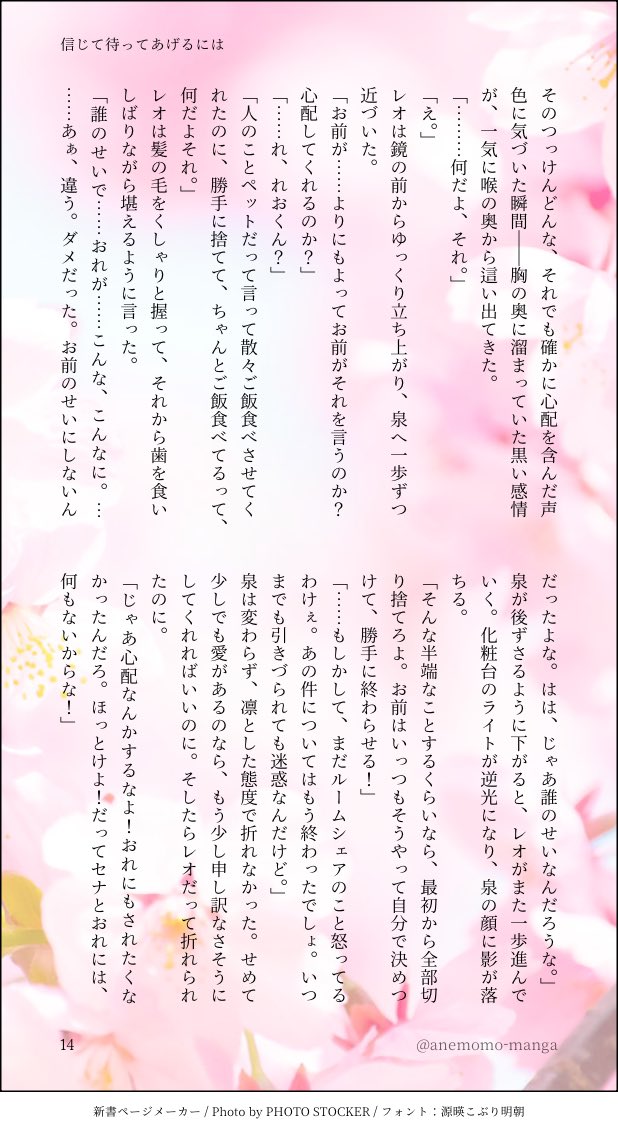 信じて待ってあげるには
そのつっけんどんな、それでも確かに心配を含んだ声
色に気づいた瞬間――胸の奥に溜まっていた黒い感情
が、一気に喉の奥から這い出てきた。
「………何だよ、それ。」
「え。」
レオは鏡の前からゆっくり立ち上がり、泉へ一歩ずつ
近づいた。
「お前が……よりにもよってお前がそれを言うのか？
心配してくれるのか？」
「……れ、れおくん？」
「人のことペットだって言って散々ご飯食べさせてく
れたのに、勝手に捨てて、ちゃんとご飯食べてるって、
何だよそれ。」
レオは髪の毛をくしゃりと握って、それから歯を食い
しばりながら堪えるように言った。
「誰のせいで……おれが……こんな、こんなに。…
……あぁ、違う。ダメだった。お前のせいにしないん
だったよな。はは、じゃあ誰のせいなんだろうな。」
泉が後ずさるように下がると、レオがまた一歩進んで
いく。化粧台のライトが逆光になり、泉の顔に影が落
ちる。
「そんな半端なことするくらいなら、最初から全部切
り捨てろよ。お前はいっつもそうやって自分で決めつ
けて、勝手に終わらせる！」
「……もしかして、まだルームシェアのこと怒ってる
わけぇ。あの件についてはもう終わったでしょ。いつ
までも引きづられても迷惑なんだけど。」
泉は変わらず、凛とした態度で折れなかった。せめて
少しでも愛があるのなら、もう少し申し訳なさそうに
してくれればいいのに。そしたらレオだって折れられ
たのに。
「じゃあ心配なんかするなよ！おれにもされたくな
かったんだろ。ほっとけよ！だってセナとおれには、
何もないからな！」
14
@anemomo-manga
新書ページメーカー / Photo by PHOTO STOCKER / フォント：源暎こぶり明朝